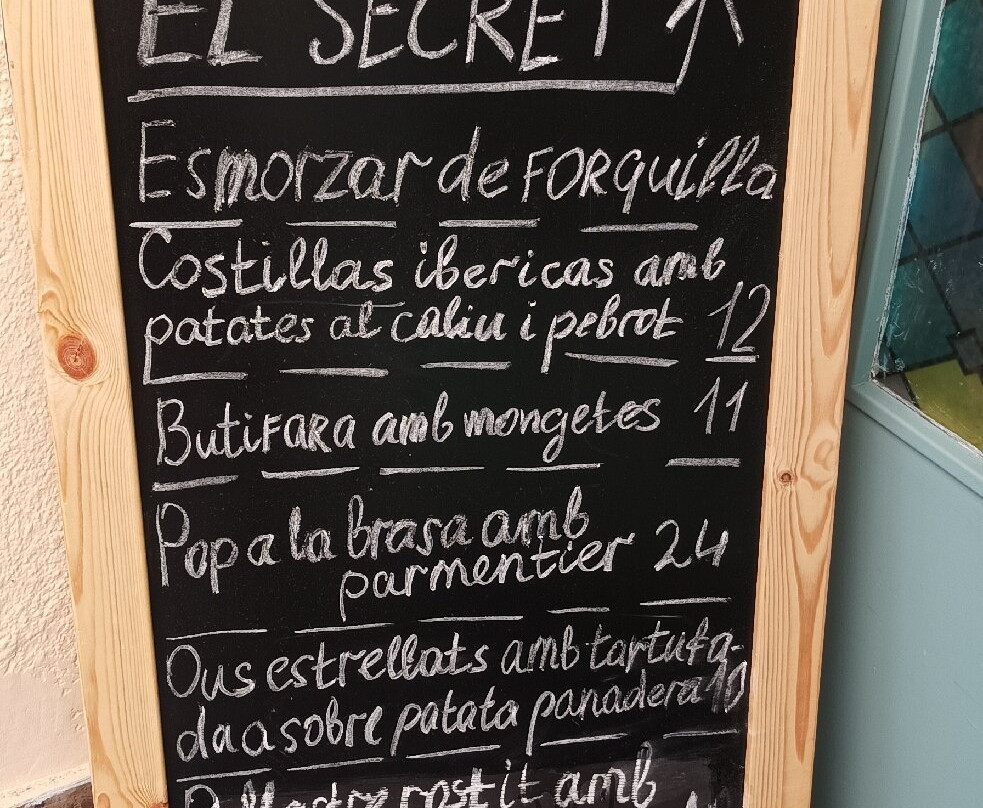 EL SECRET
Esmorzar de FORquilla
Costillas ibericas amb
patates al caliu i pebrot 12
Butifara amb mongetes 11
Pop a la brasa amb
parmentier 24
Ous estrellats amb tartufa-
daa sobre patata panadera 10
Pollastre rostit amb